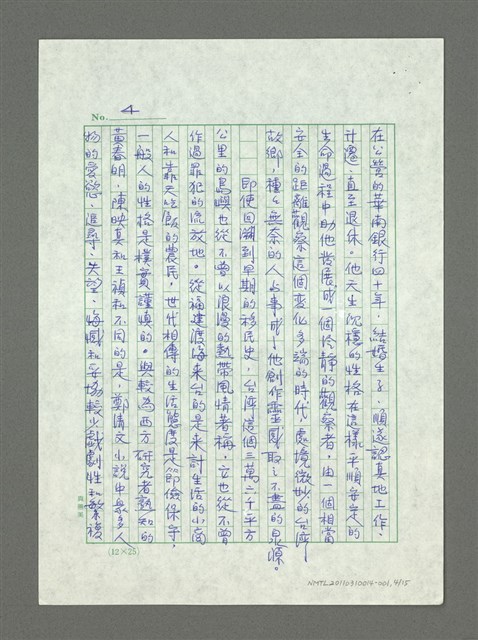 No. 4
在公營的華南銀行四十年，結婚生子，順遂認真地工作、
升遷，直至退休。他天生沉穩的性格在這樣平順安定的
生命過程中助他發展成一個冷靜的觀察者，由一個相當
安全的距離觀察這個变化多端的時代，處境微妙的台灣
故鄉，種種無奈的人与事成了他創作靈感取之不盡的泉源。
即使回溯到早期的移民史，台灣這個三萬六千平方
公里的島嶼也從不曾以浪漫的熱帶風情著稱，它也從不曾
作過罪犯的流放地。從福建渡海來台的是來討生活的小商
人和靠天吃飯的農民，世代相傳的生活態度是節儉保守，
一般人的性格是樸實謹慎的。與較為西方研究者熟知的
黃春明，陳映真和王禎和不同的是，鄭清文小說中眾多人
物的愛慾、追尋、失望、悔恨和妥協較少戲劇性和繁複
(12×25)
NMTL20110310014-001, 4/15